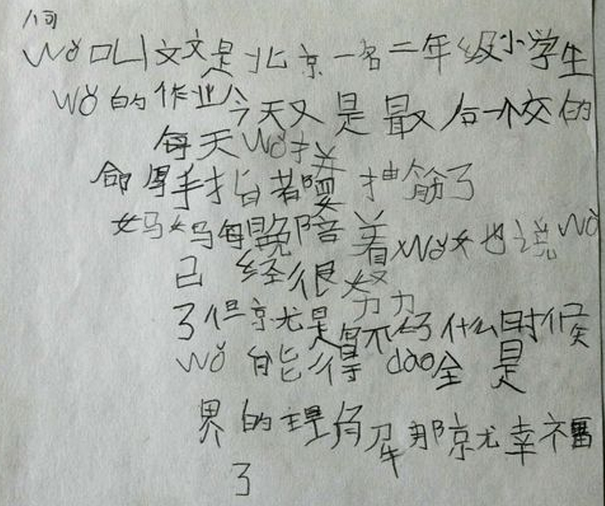 wǒ叫文文是北京一名二年级小学生
wǒ的作业今天又是最后一个交的
每天wǒ拼
命写手指都要抽筋了
妈妈每晚陪着wǒ她也说wǒ
已经很努力
了但就是写不好什么时候
wǒ能得dao全是
界的理解那就幸福
了